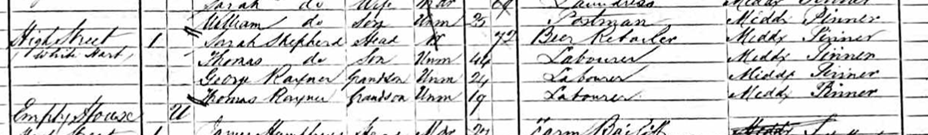 Sarah do Wife Mar 69 Laundress Middx Pinner
William do Son Unm 25 Postman Middx Pinner
High Street 1 Sarah Shepherd Head W 72 Beer Retailer Middx Pinner
(White Hart) Thomas do Son Unm 44 Labourer Middx Pinner
George Rayner Grandson Unm 24 Labourer Middx Pinner
Thomas Rayner Grandson Unm 19 Labourer Middx Pinner
Empty House 1U
1 James Humphrey Mar Farm Bailiff Middx